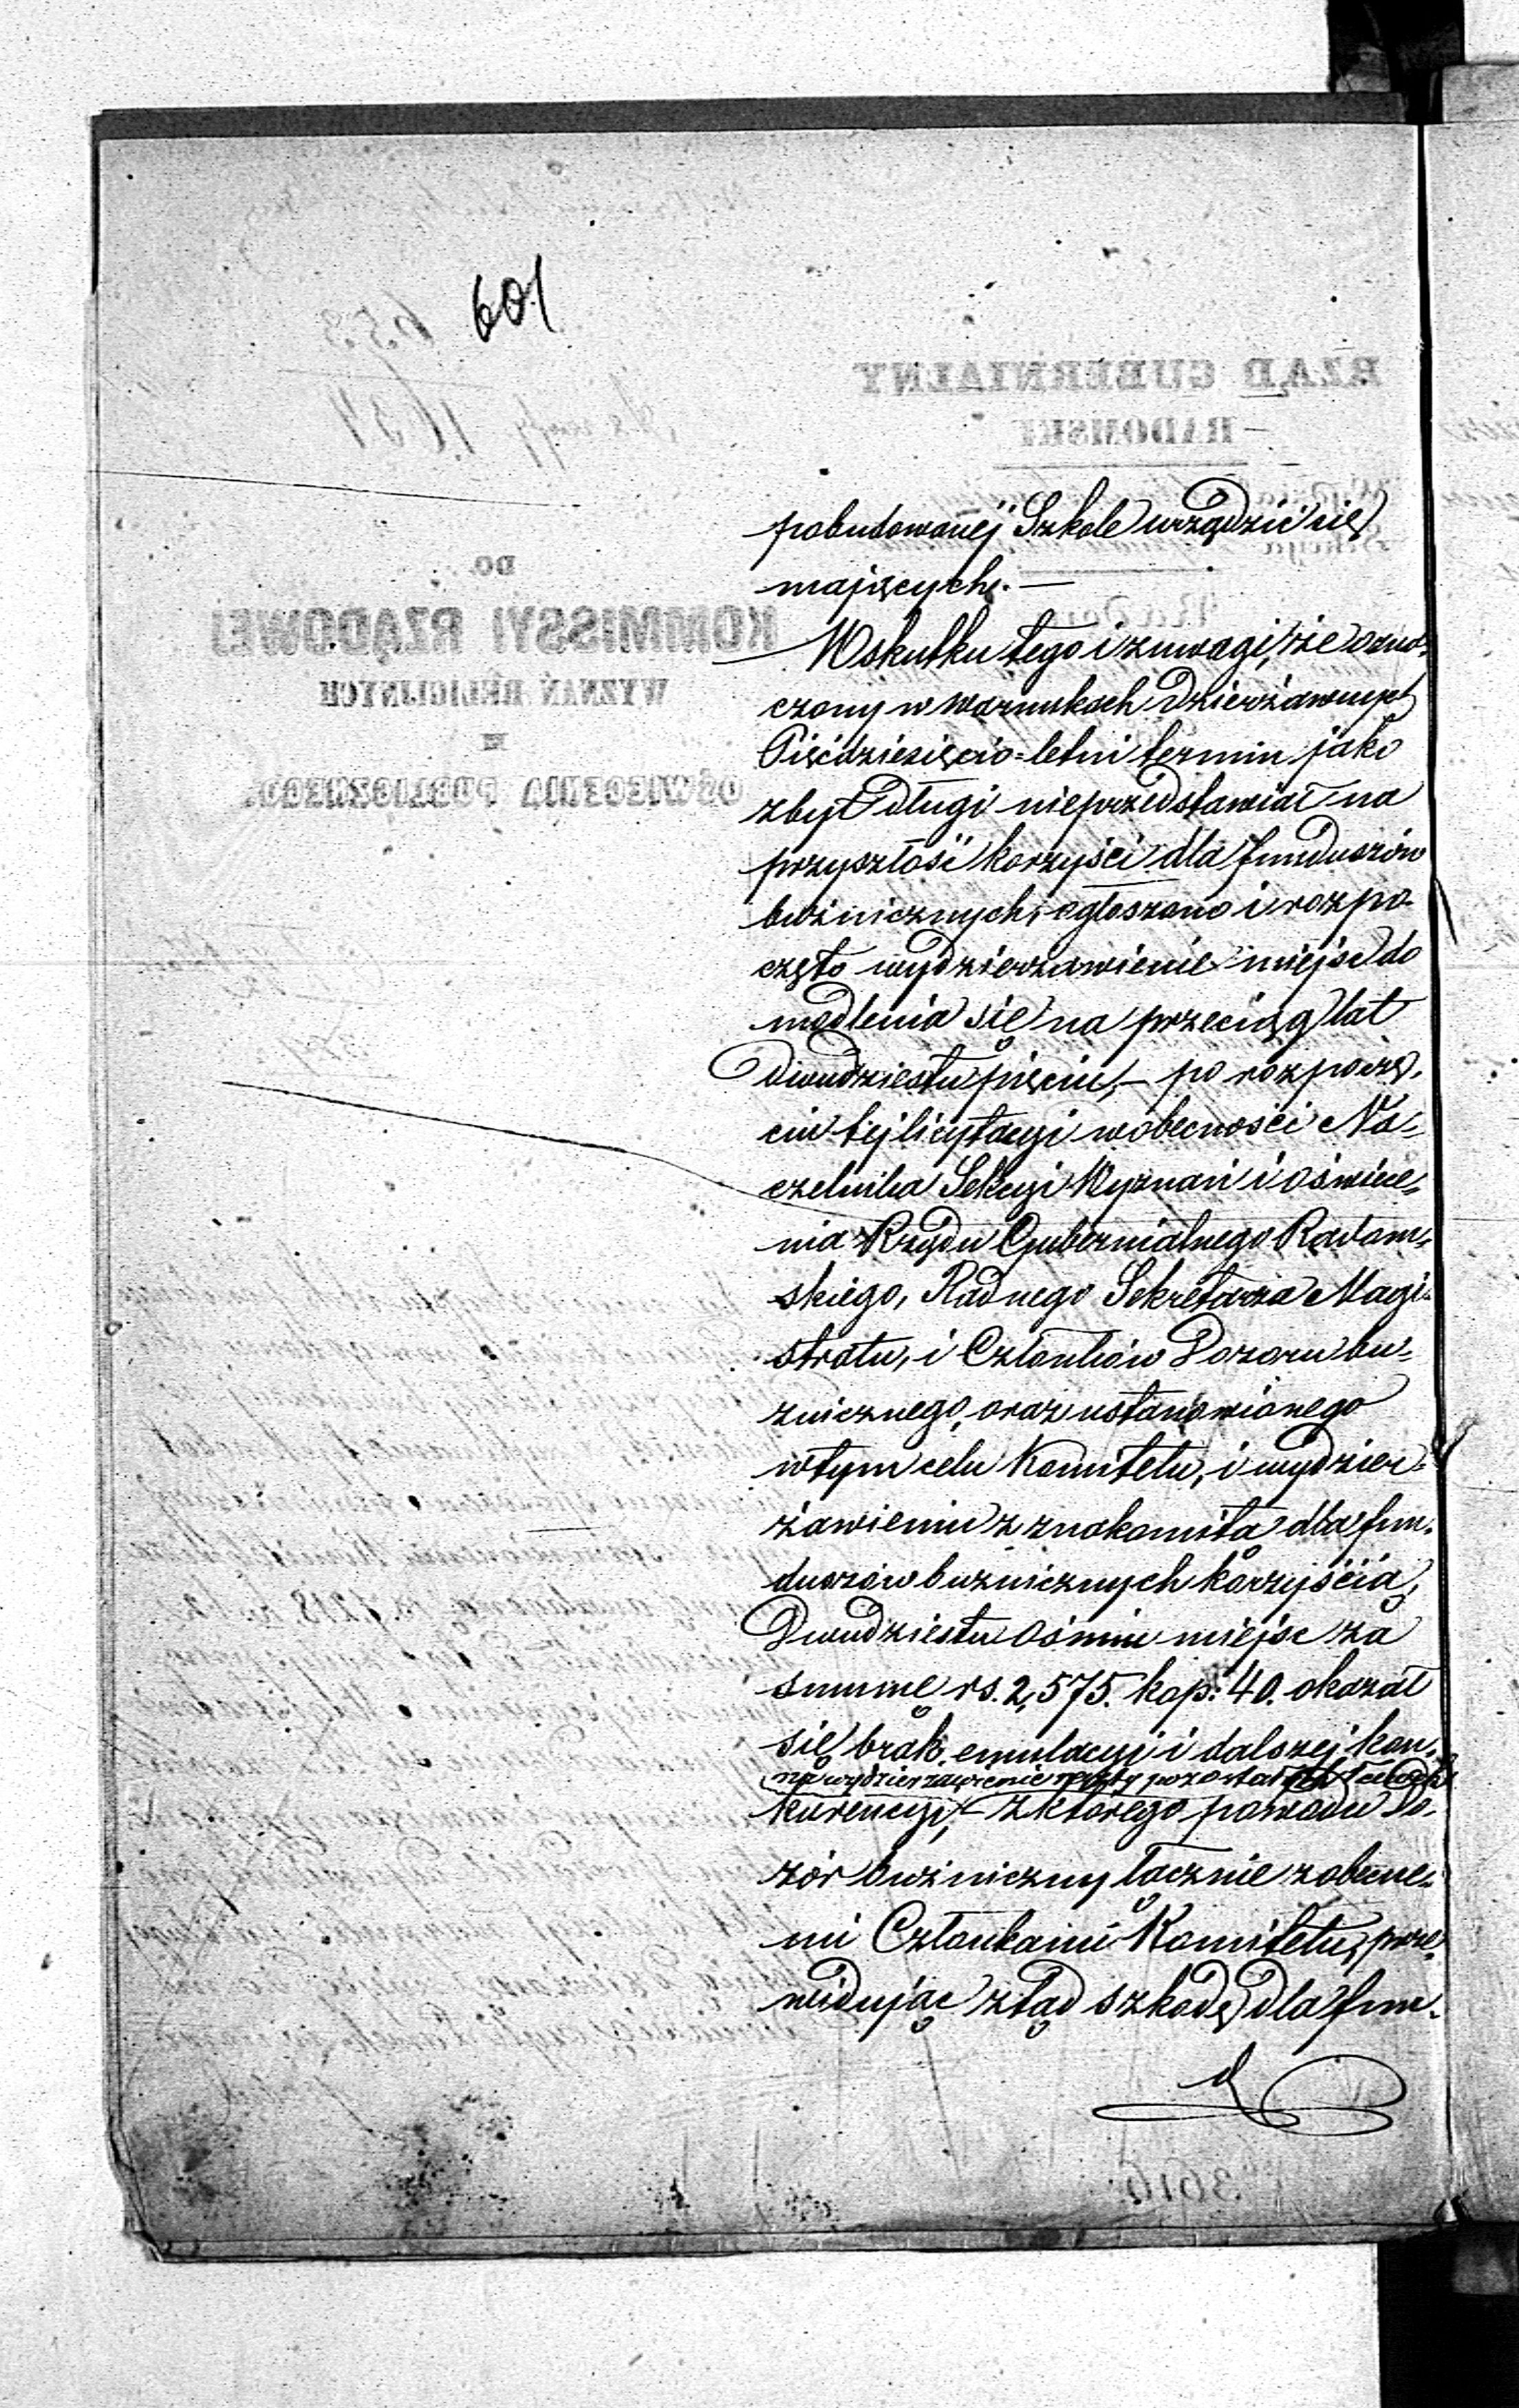 601
pobudowanej Szkole urządzić się
mających.—
Wskutku tego i z uwagi, że ozna-
czony w warunkach Dzierżawnych
Pięćdziesięcio=letni termin jako
zbyt długi nieprzedstawiał na
przyszłość korzyści dla funduszów
bużnicznych, ogłoszono i rozpo-
częto wydzierżawienie miejsc do
modlenia się na przeciąg lat
dwudziestu pięciu,— po rozpoczę-
ciu tej licytacyi w obecności Na-
czelnika Sekcyi Wyznań i oświece-
nia Rządu Gubernialnego Radom-
skiego, Radnego Sekretarza Magi-
stratu, i Członków Dozoru bu-
żnicznego, oraz ustanowionego
w tym celu Komitetu, i wydzier-
żawieniu z znakomitą dla fun-
duszów bużnicznych korzyścią,
Dwudziestu ośmiu miejsc za
summę rs. 2,575. kop: 40. okazał
się brak emulacyi i dalszej kon-
na wydzierżawienie reszty pozostałych
kurencyi,— z którego powodu Do-
zór bużniczny łącznie z obecne-
mi Członkami Komitetu, prze-
widując ztąd szkodę dla fun-